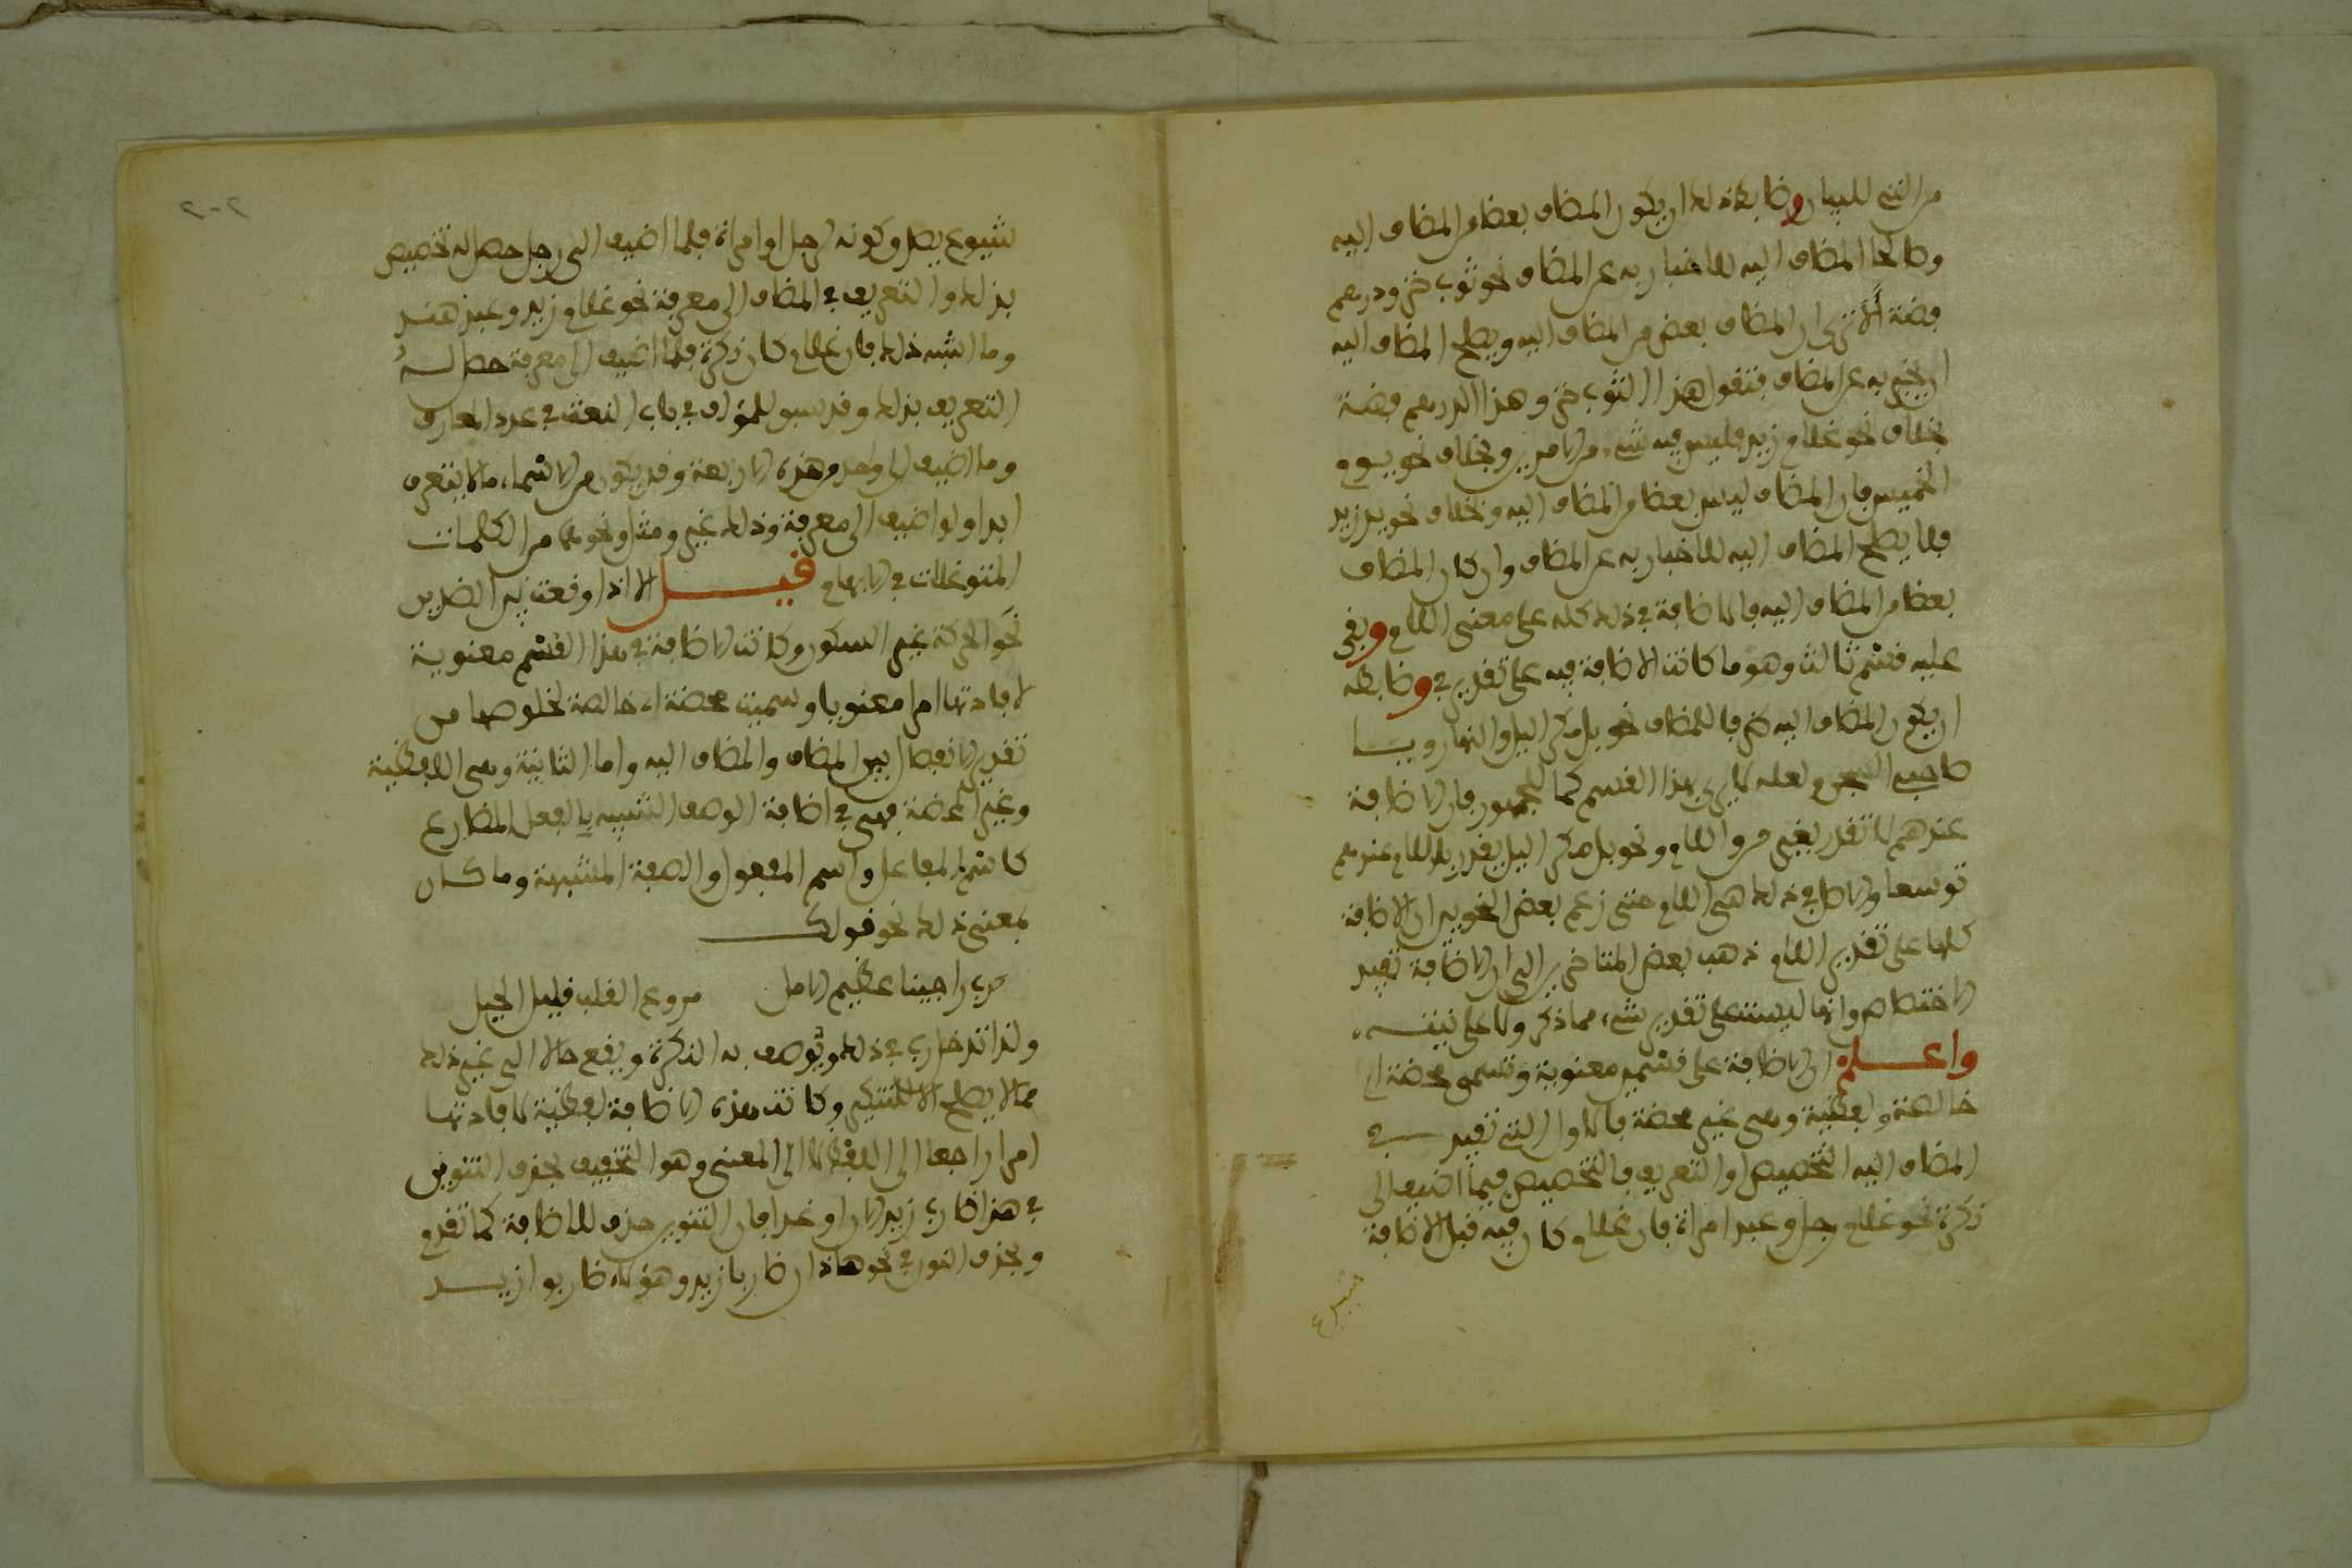 من التي للبيان وضابطة ذلك ان يكون المضاف بعضا من المضاف اليه
وصالحا المضاف اليه للاخبار به عن المضاف نحو ثوب خز ودرهم
فضة ألا ترى ان المضاف بعض من المضاف اليه ويصلح المضاف اليه
ان يخبر به عن المضاف فتقول هذا الثوب خز وهذا الدرهم فضة
بخلاف نحو غلام زيد فليس فيه شيء من الامرين وبخلاف نحو يوم
الخميس فان المضاف ليس بعضا من المضاف اليه وبخلاف نحو يد زيد
فلا يصلح المضاف اليه للاخبار به عن المضاف وان كان المضاف
بعضا من المضاف اليه فالاضافة في ذلك كله على معنى اللام وبقي
عليه قسم ثالث وهو ما كانت الاضافة فيه على تقدير في وضابطه
ان يكون المضاف اليه ظرفا للمضاف نحو بل مكر اليل والنهار ويا
صاحبي السجن ولعله لا يرى هذا القسم كما للجمهور فان الاضافة
عندهم لا تقدر بغير من واللام ونحو بل مكر اليل يقدر باللام عندهم
توسعا والاصل في ذلك هي اللام حتى زعم بعض النحويين ان الاضافة
كلها على تقدير اللام ذهب بعض المتاخرين الى ان الاضافة تفيد
الاختصاص وانها ليست على تقدير شيء مما ذكر ولا على نيته
واعلم ان الاضافة على قسمين معنوية وتسمى محضة اي
خالصة ولفظية وهي غير محضة فالاول التي تفيد في
المضاف اليه التخصيص او التعريف فالتخصيص فيما اضيف الى
نكرة نحو غلام رجل وعبد امراة فان غلام كان فيه قبل الاضافة
شيوع
٢٠٢
شيوع يصلح كونه لرجل او امراة فلما اضيف الى رجل حصل له تخصيص
بذلك والتعريف في المضاف الى معرفة نحو غلام زيد وعبد هند
وما اشبه ذلك فان غلام كان نكرة فلما اضيف الى معرفة حصل له
التعريف بذلك وقد سبق للمؤلف في باب النعت في عدد المعارف
وما اضيف الى واحد من هذه الاربعة وقد يكون من الاسماء ما لا يتعرف
ابدا ولو اضيف الى معرفة وذلك غير ومثل ونحوهما من الكلمات
المتوغلات في الابهام قيل الا اذا وقعت بين الضدين
نحو الحركة غير السكون وكانت الاضافة في هذا القسم معنوية
لافادتها امرا معنويا وسميت محضة اي خالصة لخلوصها من
تقدير الانفصال بين المضاف والمضاف اليه واما الثانية وهي اللفظية
وغير المحضة فهي في اضافة الوصف الشبيه بالفعل المضارع
كاسم الفاعل واسم المفعول والصفة المشبهة وما كان
بمعنى ذلك نحو قولك
رب راجينا عظيم الامل مروع القلب قليل الحيل
ولذا تدخل رب في ذلك ويوصف به النكرة ويقع حالا الى غير ذلك
مما لا يصلح الا للتنكير وكانت هذه الاضافة لفظية لافادتها
امرا راجعا الى اللفظ لا الى المعنى وهو التخفيف بحذف التنوين
في هذا ضارب زيد الان او غدا فان التنوين حذف للاضافة كما تقدم
وبحذف النون في نحو هاذان ضاربا زيد وهؤلاء ضاربوا زيد